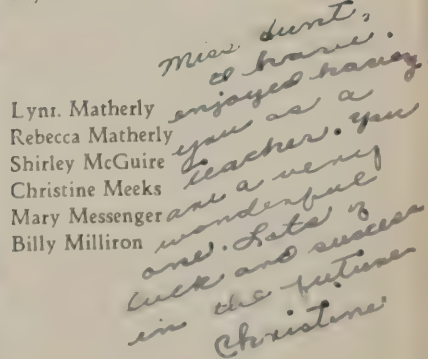 Lynn Matherly
Rebecca Matherly
Shirley McGuire
Christine Meeks
Mary Messenger
Billy Milliron
Miss Hunt,
I have
enjoyed having
you as a
teacher. You
are a very
wonderful
one. Lots of
luck and success
in the future
Christine